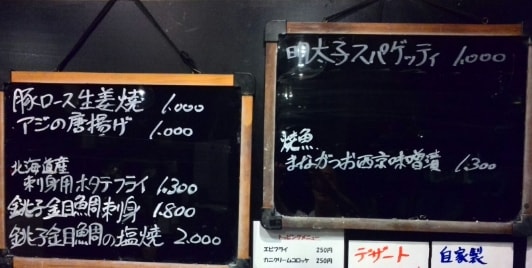 豚ロース生姜焼 1.000
アジの唐揚げ 1.000
北海道産
刺身用ホタテフライ 1.300
銚子金目鯛刺身 1.800
銚子金目鯛の塩焼 2.000
明太子スパゲッティ 1.000
焼魚
まながつお西京味噌漬 1.300
トッピングメニュー
エビフライ 250円
カニクリームコロッケ 250円
デザート
自家製